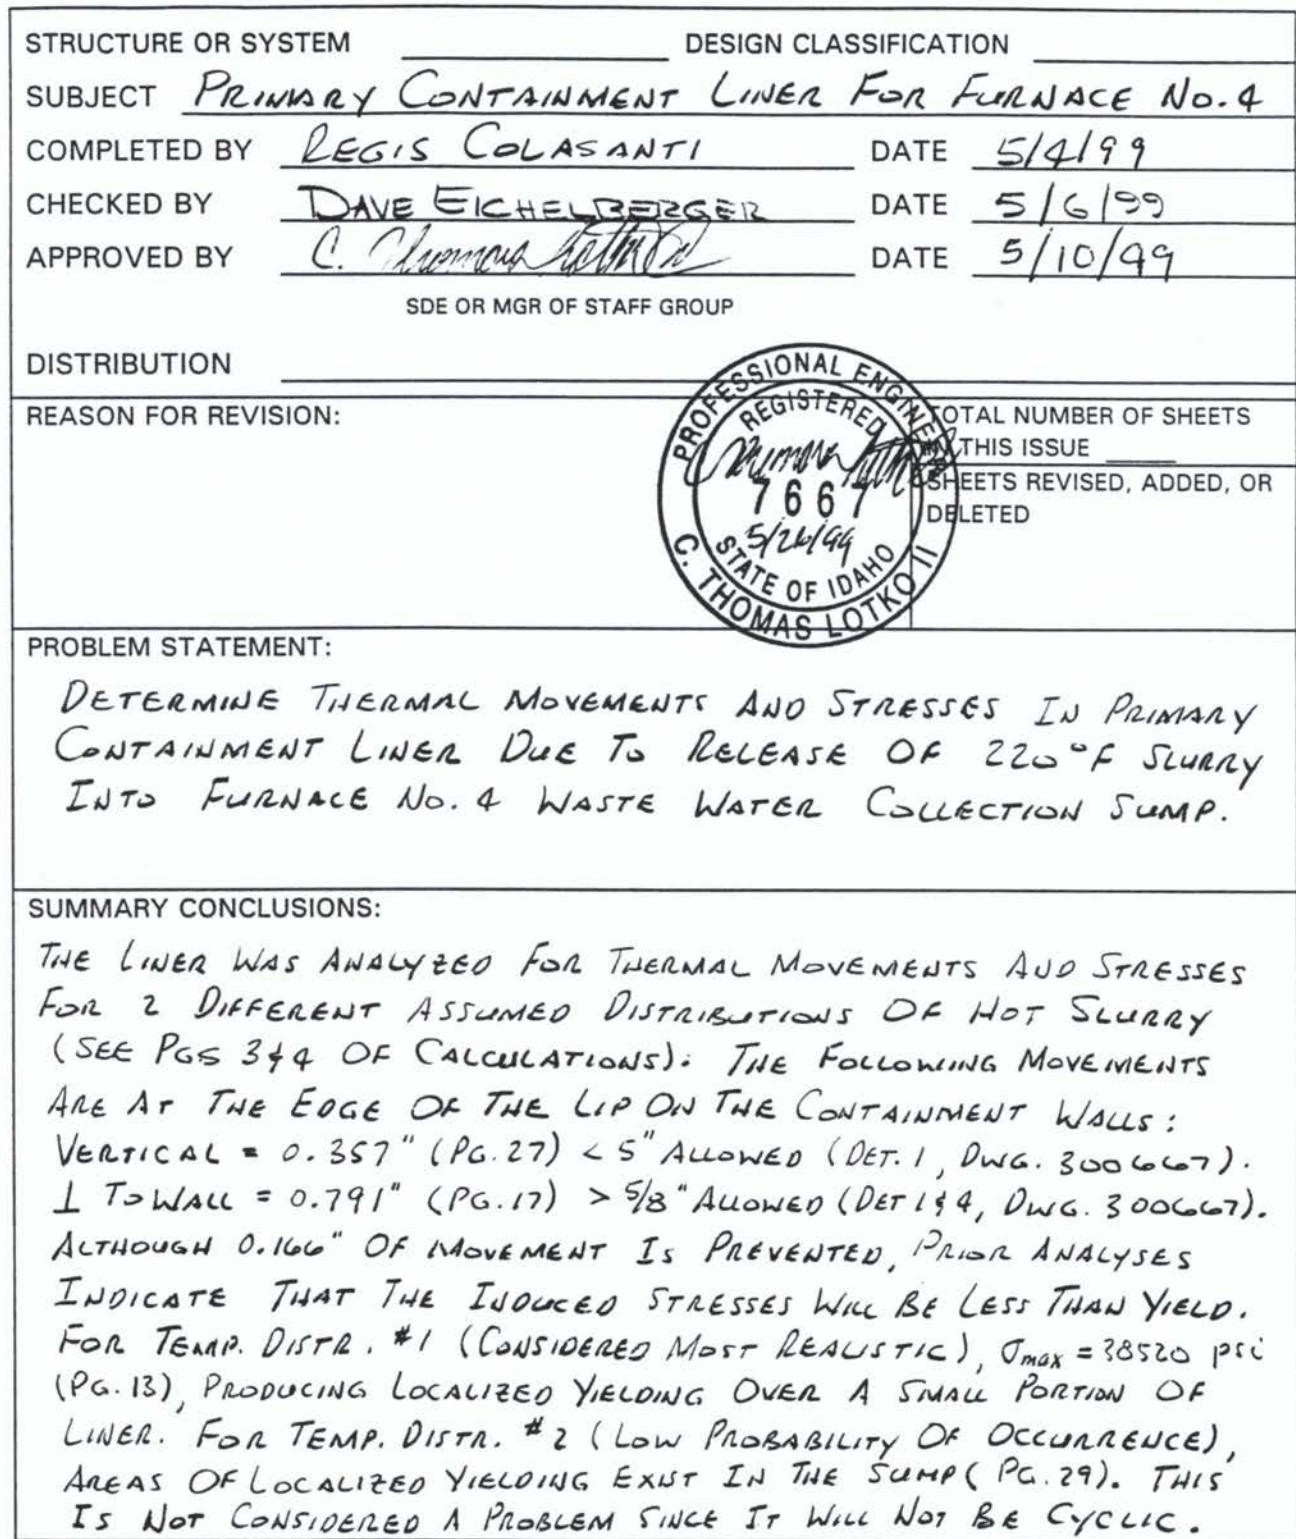 STRUCTURE OR SYSTEM DESIGN CLASSIFICATION
SUBJECT PRIMARY CONTAINMENT LINER FOR FURNACE NO. 4
COMPLETED BY REGIS COLASANTI DATE 5/4/99
CHECKED BY DAVE EICHELBERGER DATE 5/6/99
APPROVED BY C. Thomas Lotko II DATE 5/10/99
SDE OR MGR OF STAFF GROUP
DISTRIBUTION
REASON FOR REVISION:
PROFESSIONAL ENGINEER
REGISTERED
7667
5/26/99
STATE OF IDAHO
C. THOMAS LOTKO II
TOTAL NUMBER OF SHEETS
THIS ISSUE
SHEETS REVISED, ADDED, OR
DELETED
PROBLEM STATEMENT:
DETERMINE THERMAL MOVEMENTS AND STRESSES IN PRIMARY
CONTAINMENT LINER DUE TO RELEASE OF 220°F SLURRY
INTO FURNACE NO. 4 WASTE WATER COLLECTION SUMP.
SUMMARY CONCLUSIONS:
THE LINER WAS ANALYZED FOR THERMAL MOVEMENTS AND STRESSES
FOR 2 DIFFERENT ASSUMED DISTRIBUTIONS OF HOT SLURRY
(SEE PGS 3&4 OF CALCULATIONS). THE FOLLOWING MOVEMENTS
ARE AT THE EDGE OF THE LIP ON THE CONTAINMENT WALLS:
VERTICAL = 0.357" (PG. 27) < 5" ALLOWED (DET. 1, DWG. 300667).
⊥ TO WALL = 0.791" (PG. 17) > 5/8" ALLOWED (DET 1&4, DWG. 300667).
ALTHOUGH 0.166" OF MOVEMENT IS PREVENTED, PRIOR ANALYSES
INDICATE THAT THE INDUCED STRESSES WILL BE LESS THAN YIELD.
FOR TEMP. DISTR. #1 (CONSIDERED MOST REALISTIC), σmax = 38520 psi
(PG. 13), PRODUCING LOCALIZED YIELDING OVER A SMALL PORTION OF
LINER. FOR TEMP. DISTR. #2 (LOW PROBABILITY OF OCCURRENCE),
AREAS OF LOCALIZED YIELDING EXIST IN THE SUMP (PG. 29). THIS
IS NOT CONSIDERED A PROBLEM SINCE IT WILL NOT BE CYCLIC.